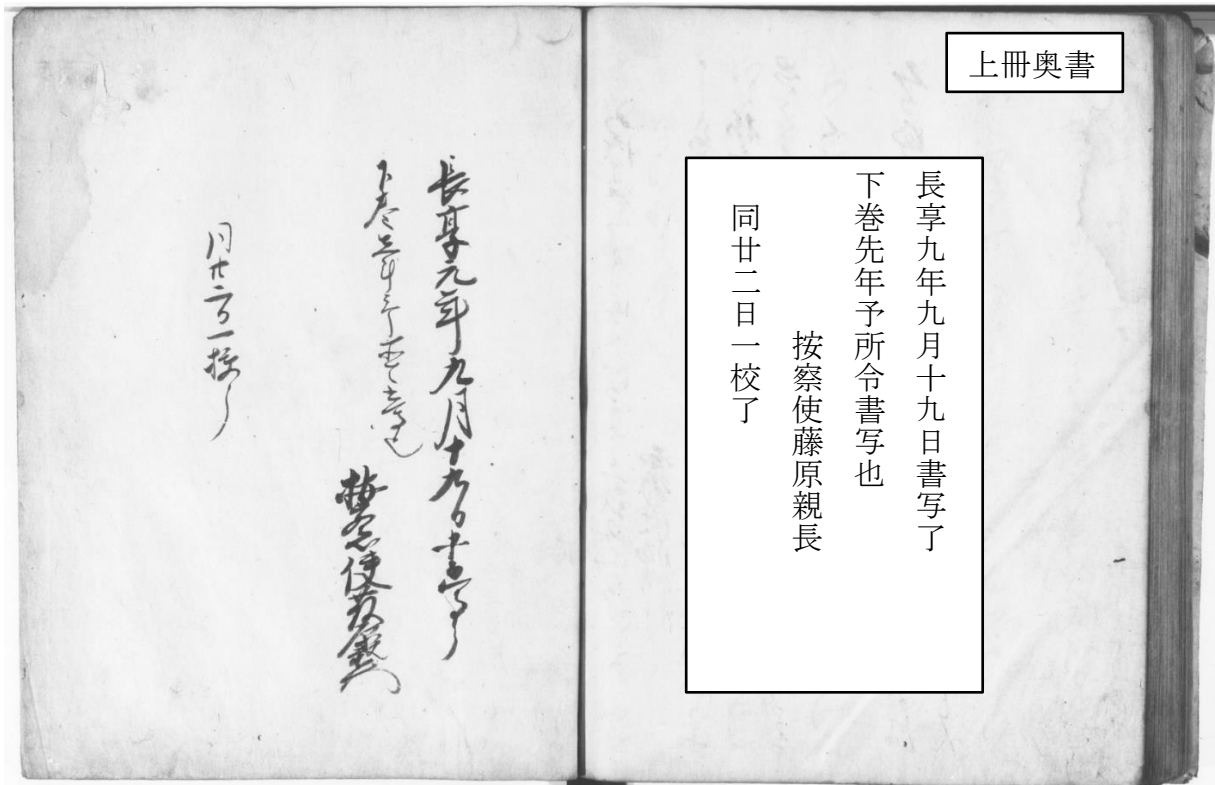 上冊奥書
長享九年九月十九日書写了
下巻先年予所令書写也
按察使藤原親長
同廿二日一校了
長享元年九月十九日書写了
下巻先年予
按察使藤
同廿二日一校了